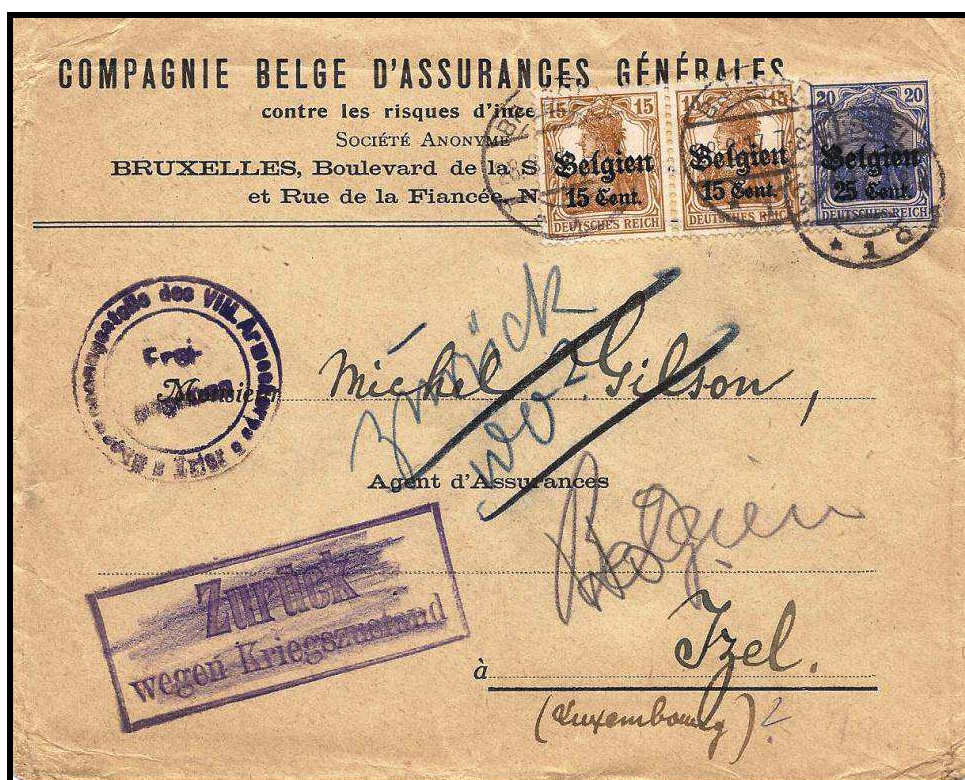 COMPAGNIE BELGE D'ASSURANCES GÉNÉRALES
contre les risques d'ince
SOCIÉTÉ ANONYME
BRUXELLES, Boulevard de la S
et Rue de la Fiancée, N
15 15
Belgien
15 Cent.
DEUTSCHES REICH
15 15
Belgien
15 Cent.
DEUTSCHES REICH
20 20
Belgien
25 Cent.
DEUTSCHES REICH
* 1 c
des VIII. Armeekorps
Trier
Zurück
wo?
Monsieur Michel Gilson,
Agent d'Assurances
Belgien
Zurück
wegen Kriegszustand
à Izel.
(Luxembourg) ?